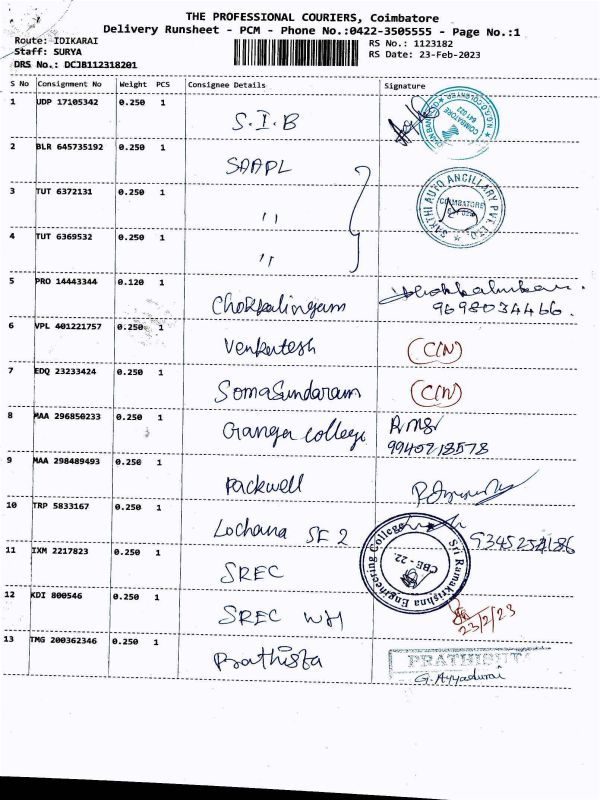 THE PROFESSIONAL COURIERS, Coimbatore
Delivery Runsheet - PCM - Phone No.:0422-3505555 - Page No.:1
Route: IDIKARAI
RS No.: 1123182
Staff: SURYA
RS Date: 23-Feb-2023
DRS No.: DCJB112318201
S No Consignment No Weight PCS Consignee Details Signature
1 UDP 17105342 0.250 1
S.I.B
COIMBATORE
641 022
2 BLR 645735192 0.250 1
SAAPL
SAKTHI AUTO ANCILLARY PVT. LTD.
COIMBATORE
3 TUT 6372131 0.250 1
"
4 TUT 6369532 0.250 1
"
5 PRO 14443344 0.120 1
Chokkalingam
9698034466.
6 VPL 401221757 0.250 1
Venkatesh (CIN)
7 EDQ 23233424 0.250 1
SomaSundaram (CIN)
8 MAA 296850233 0.250 1
Ganga College
9940218578
9 MAA 298489493 0.250 1
Packwell
10 TRP 5833167 0.250 1
Lochana SF 2
Sri Ramakrishna Engineering College
CBE - 22.
11 IXM 2217823 0.250 1
SREC
12 KDI 800546 0.250 1
SREC WH
23/2/23
13 TMG 200362346 0.250 1
Prathista
G. Ayyadurai